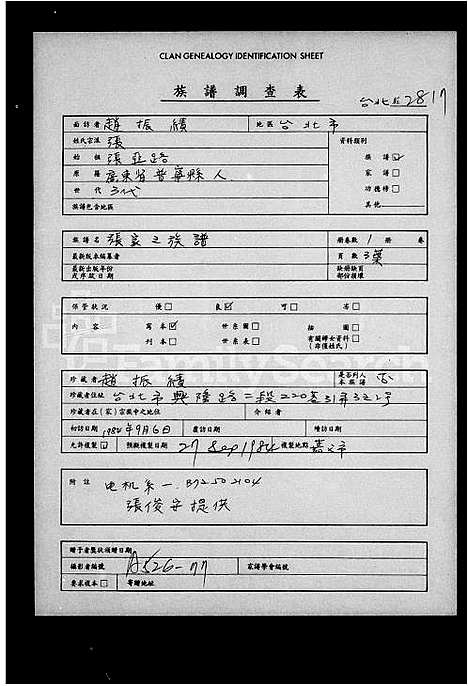 CLAN GENEALOGY IDENTIFICATION SHEET
族譜調查表
台北縣2817
面訪者 趙振績 地區 台北市
姓氏宗派 張
資料類別
始祖 張亞路
族譜☑
原籍 廣東省普寧縣人
家譜□
世代 3代
功德榜□
族譜包含地區
其他
族譜名 張家之族譜 冊卷數 1 冊 卷
最新版本編纂者 頁數 3葉
最新出版年份或序跋日期 缺冊缺頁部份損壞
保管狀況 優□ 良☑ 可□ 劣□
內容 寫本☑ 世系圖□ 插圖□
刊本□ 世系表□ 有關婦女資料□(非僅姓氏)
珍藏者 趙振績 是否列入本族譜 否
珍藏者住址 台北市興隆路二段220巷31弄3之2號
珍藏者在(家)宗族中之地位 介紹者
初訪日期 1984年9月6日 覆訪日期 增訪日期
允許複製☑ 預擬複製日期 27 Sep 1984 複製地點 嘉義市
附註 电机系一. B72502104
張俊宇提供
贈予者獎狀頒贈日期
攝影者編號 A526-77 家譜學會編號
要求複本□ 寄贈地址
FamilySearch